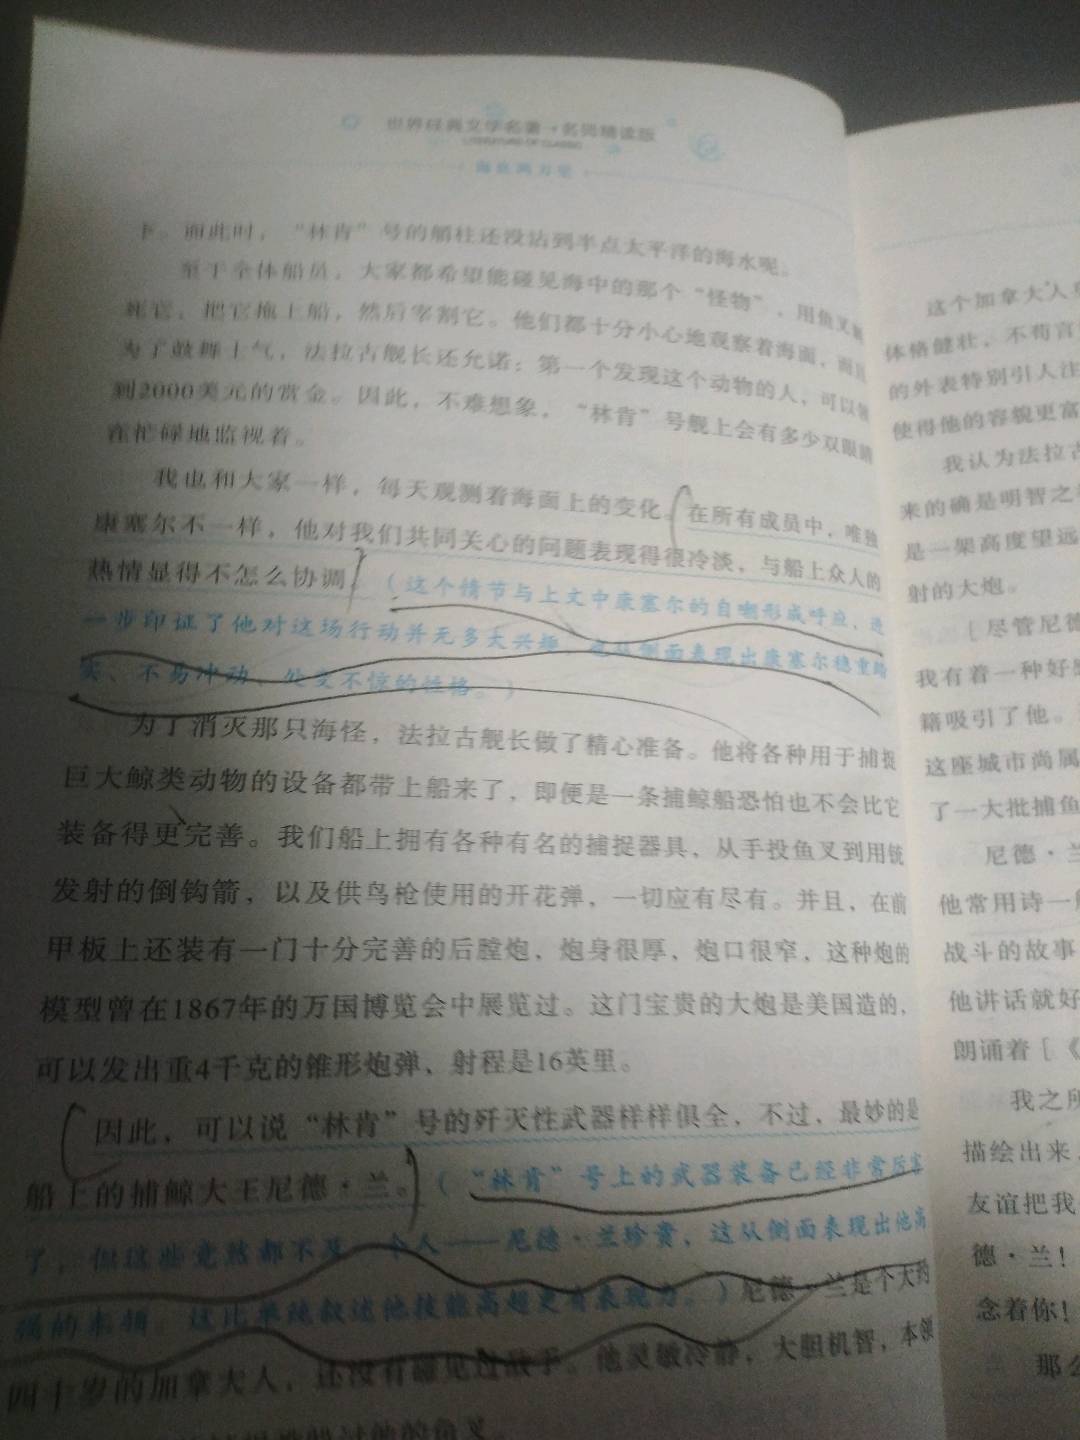 世界经典文学名著·名师精读版
LITERATURE OF CLASSIC
海底两万里
下。而此时，“林肯”号的艏柱还没沾到半点太平洋的海水呢。
至于全体船员，大家都希望能碰见海中的那个“怪物”，用鱼叉
死它，把它拖上船，然后宰割它。他们都十分小心地观察着海面，而且
为了鼓舞士气，法拉古舰长还允诺：第一个发现这个动物的人，可以领
到2000美元的赏金。因此，不难想象，“林肯”号舰上会有多少双眼睛
在忙碌地监视着。
我也和大家一样，每天观测着海面上的变化。在所有成员中，唯独
康塞尔不一样，他对我们共同关心的问题表现得很冷淡，与船上众人的
热情显得不怎么协调。（这个情节与上文中康塞尔的自嘲形成呼应，进
一步印证了他对这场行动并无多大兴趣，这从侧面表现出康塞尔稳重踏
实、不易冲动、处变不惊的性格。）
为了消灭那只海怪，法拉古舰长做了精心准备。他将各种用于捕捉
巨大鲸类动物的设备都带上船来了，即便是一条捕鲸船恐怕也不会比它
装备得更完善。我们船上拥有各种有名的捕捉器具，从手投鱼叉到用铳
发射的倒钩箭，以及供鸟枪使用的开花弹，一切应有尽有。并且，在前
甲板上还装有一门十分完善的后膛炮，炮身很厚，炮口很窄，这种炮的
模型曾在1867年的万国博览会中展览过。这门宝贵的大炮是美国造的，
可以发出重4千克的锥形炮弹，射程是16英里。
因此，可以说“林肯”号的歼灭性武器样样俱全，不过，最妙的是
船上的捕鲸大王尼德·兰。（“林肯”号上的武器装备已经非常厉害
了，但这些竟然都不及一个人——尼德·兰珍贵，这从侧面表现出他高
强的本领。这比单纯叙述他技能高超更有表现力。）尼德·兰是个大约
四十岁的加拿大人，还没有碰见过敌手。他灵敏冷静，大胆机智，本领
过他的鱼叉。
这个加拿大人
体格健壮，不苟言
的外表特别引人注
使得他的容貌更富
我认为法拉古
来的确是明智之
是一架高度望远
射的大炮。
［尽管尼德
我有着一种好
籍吸引了他。
这座城市尚属
了一大批捕鱼
尼德·兰
他常用诗一般
战斗的故事
他讲话就好
朗诵着［《
我之所
描绘出来
友谊把我
德·兰！
念着你！
那么